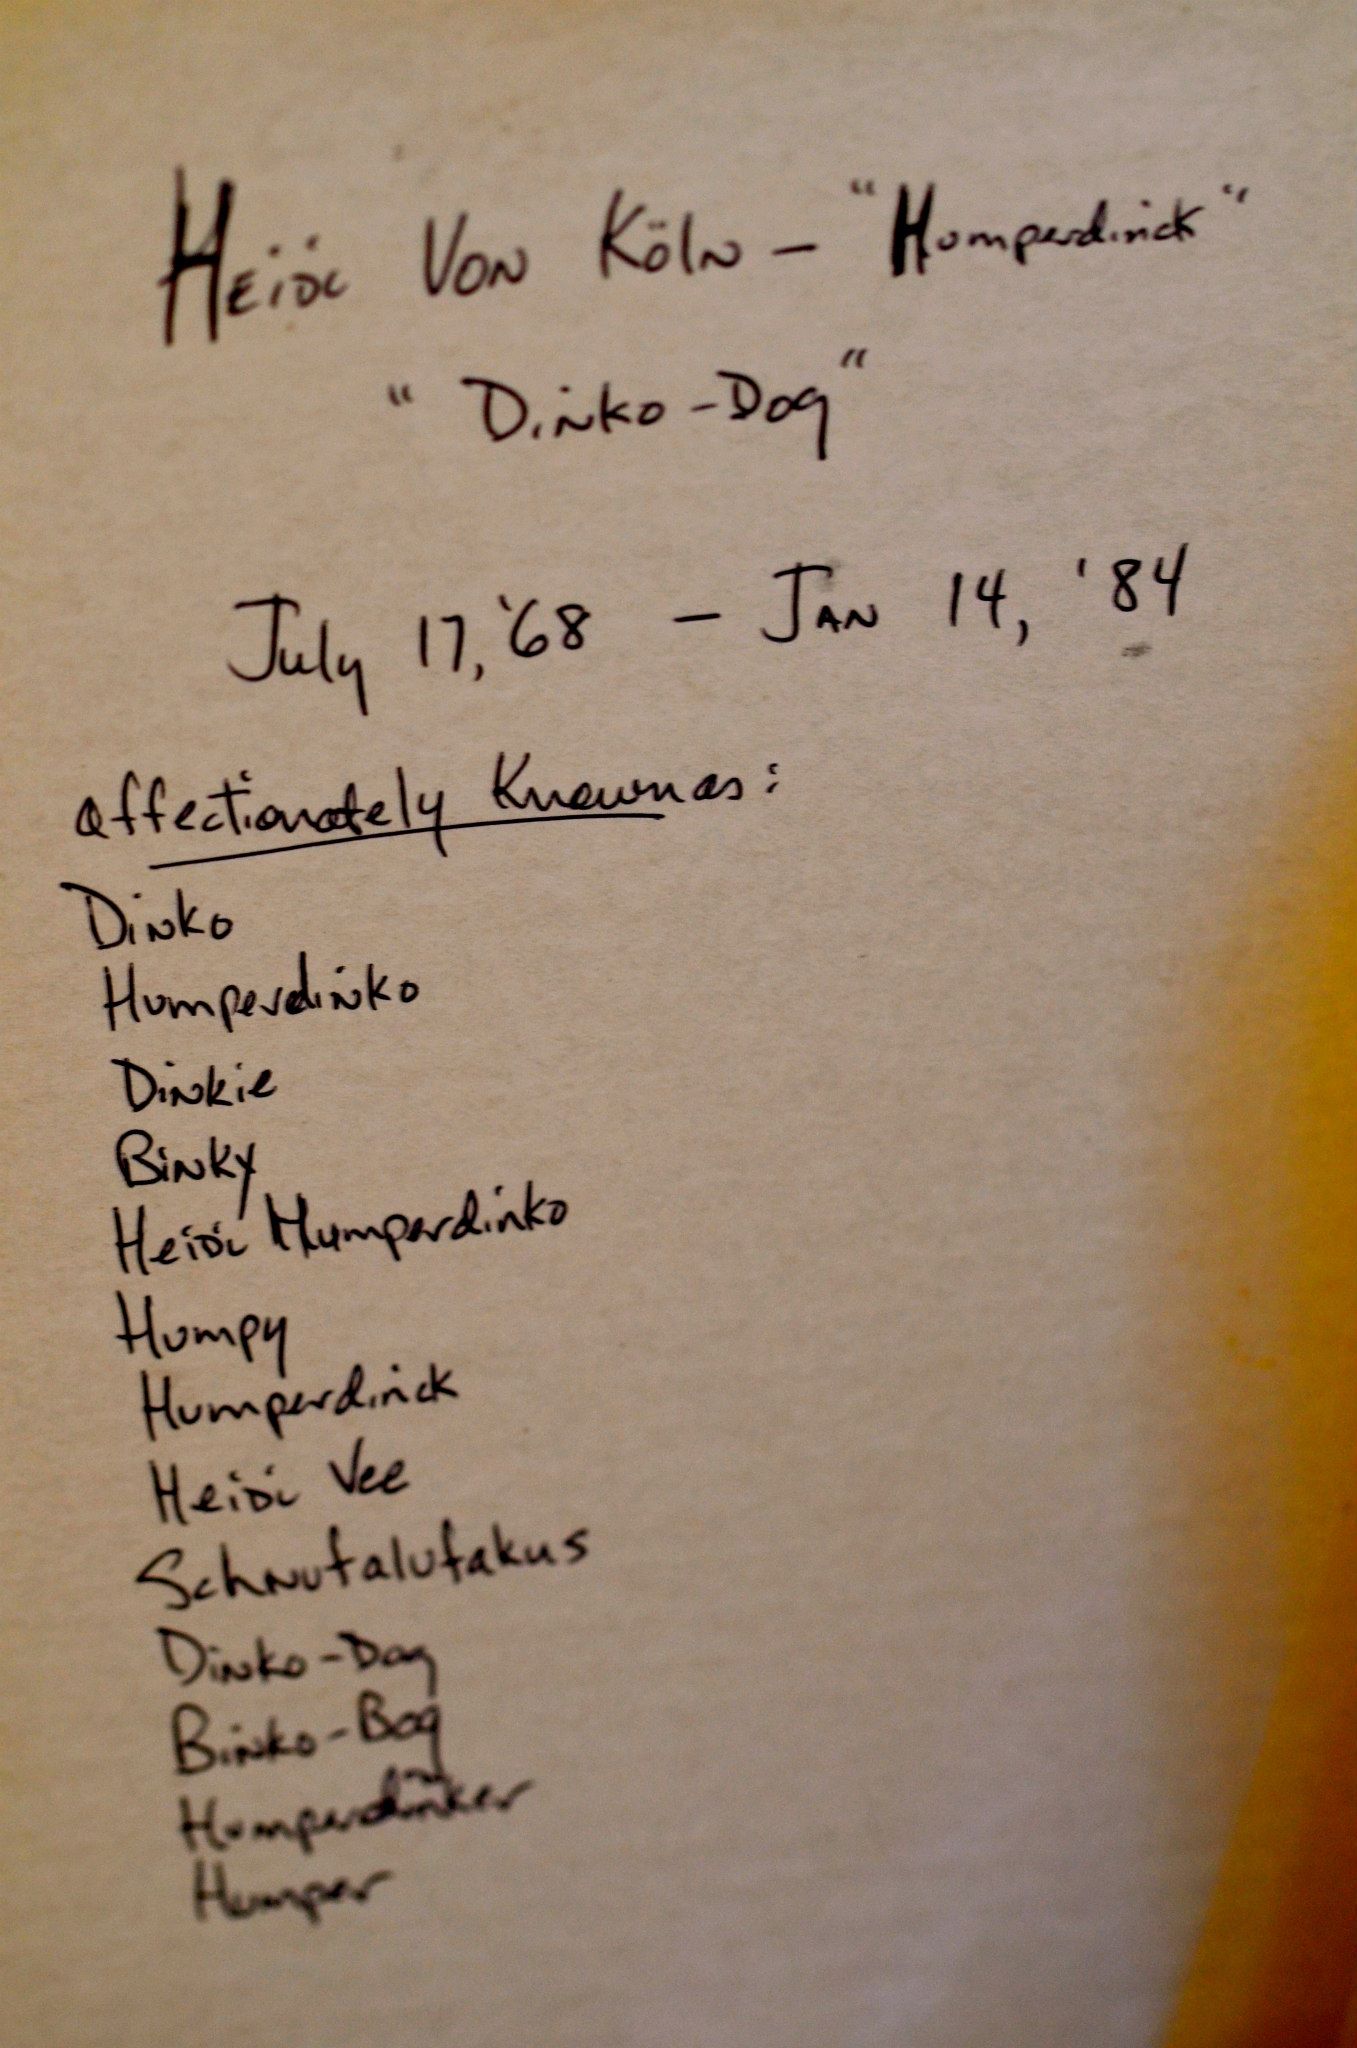 Heidi Von Köln - "Humperdinck"
"Dinko-Dog"
July 17, '68 - Jan 14, '84
affectionately Known as:
Dinko
Humperdinko
Dinkie
Binky
Heidi Humperdinko
Humpy
Humperdinck
Heidi Vee
Schnutalutakus
Dinko-Dog
Binko-Bog
Humperdinker
Humper